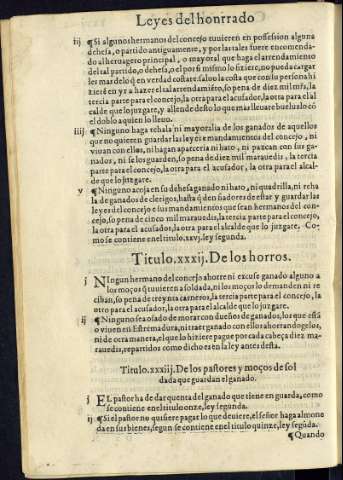 Leyes del honrrado
iij ¶ Si algunos hermanos del concejo tuuieren en possession alguna
dehesa, o partido antiguamente, y por las tales fuere encomenda-
do al heruagero principal, o mayoral que haga el arrendamiento
del tal partido, o dehesa, o el por si mismo lo hiziere, no pueda cargar
les mas de lo q̃ en verdad costare: saluo la costa que con su persona hi
ziere en yr a hazer el tal arrendamiẽto, so pena de diez mil mr̃s, la
tercia parte para el concejo, la otra para el acusador, la otra para el al
calde que lo juzgare, y allende desto lo que mas lleuare buelualo cõ
el doblo a quien lo lleuo.
iiij ¶ Ninguno haga rehala ni mayoralia de los ganados de aquellos
que no quieren guardar las leyes e mandamientos del concejo, ni
viuan con ellos, ni hagan aparceria ni hato, ni pazcan con sus ga-
nados, ni se los guarden, so pena de diez mil marauedis, la tercia
parte para el concejo, la otra para el acusador, la otra para el alcal-
de que lo juzgare.
v ¶ Ninguno acoja en su dehesa ganado ni hato, ni quadrilla, ni reha
la de ganados de clerigo, hasta q̃ den fiadores de estar y guardar las
leyes del concejo e sus mandamientos que sean hermanos del con-
cejo, so pena de cinco mil marauedis, la tercia parte para el concejo,
la otra para el acusador, la otra para el alcalde que lo juzgare. Co-
mo se contiene en el titulo. xxv. ley segunda.
Titulo. xxxij. De los horros.
j NIngun hermano del concejo ahorre ni escuse ganado alguno a
los moços q̃ tuuieren a soldada, ni los moços lo demanden ni re
ciban, so pena de treynta carneros, la tercia parte para el concejo, la
otro para el acusador, la otra para el alcalde que lo juzgare.
ij ¶ Ninguno sea osado de morar con dueños de ganados, los que està
o viuen en Estremadura, ni traer ganado con ellos ahorrandogelos,
ni de otra manera, el que lo hiziere pague por cada cabeça diez ma-
rauedis, repartidos como dicho es en la ley antes desta.
Titulo. xxxiij. De los pastores y moços de sol
dada que guardan el ganado.
j EL pastor ha de dar quenta del ganado que tiene en guarda, como
se contiene en el titulo onze, ley segunda.
ij ¶ Si el pastor no quisiere pagar lo que deuiere, el señor haga almone
da en sus bienes, segun se contiene en el titulo quinze, ley segũda.
¶ Quando